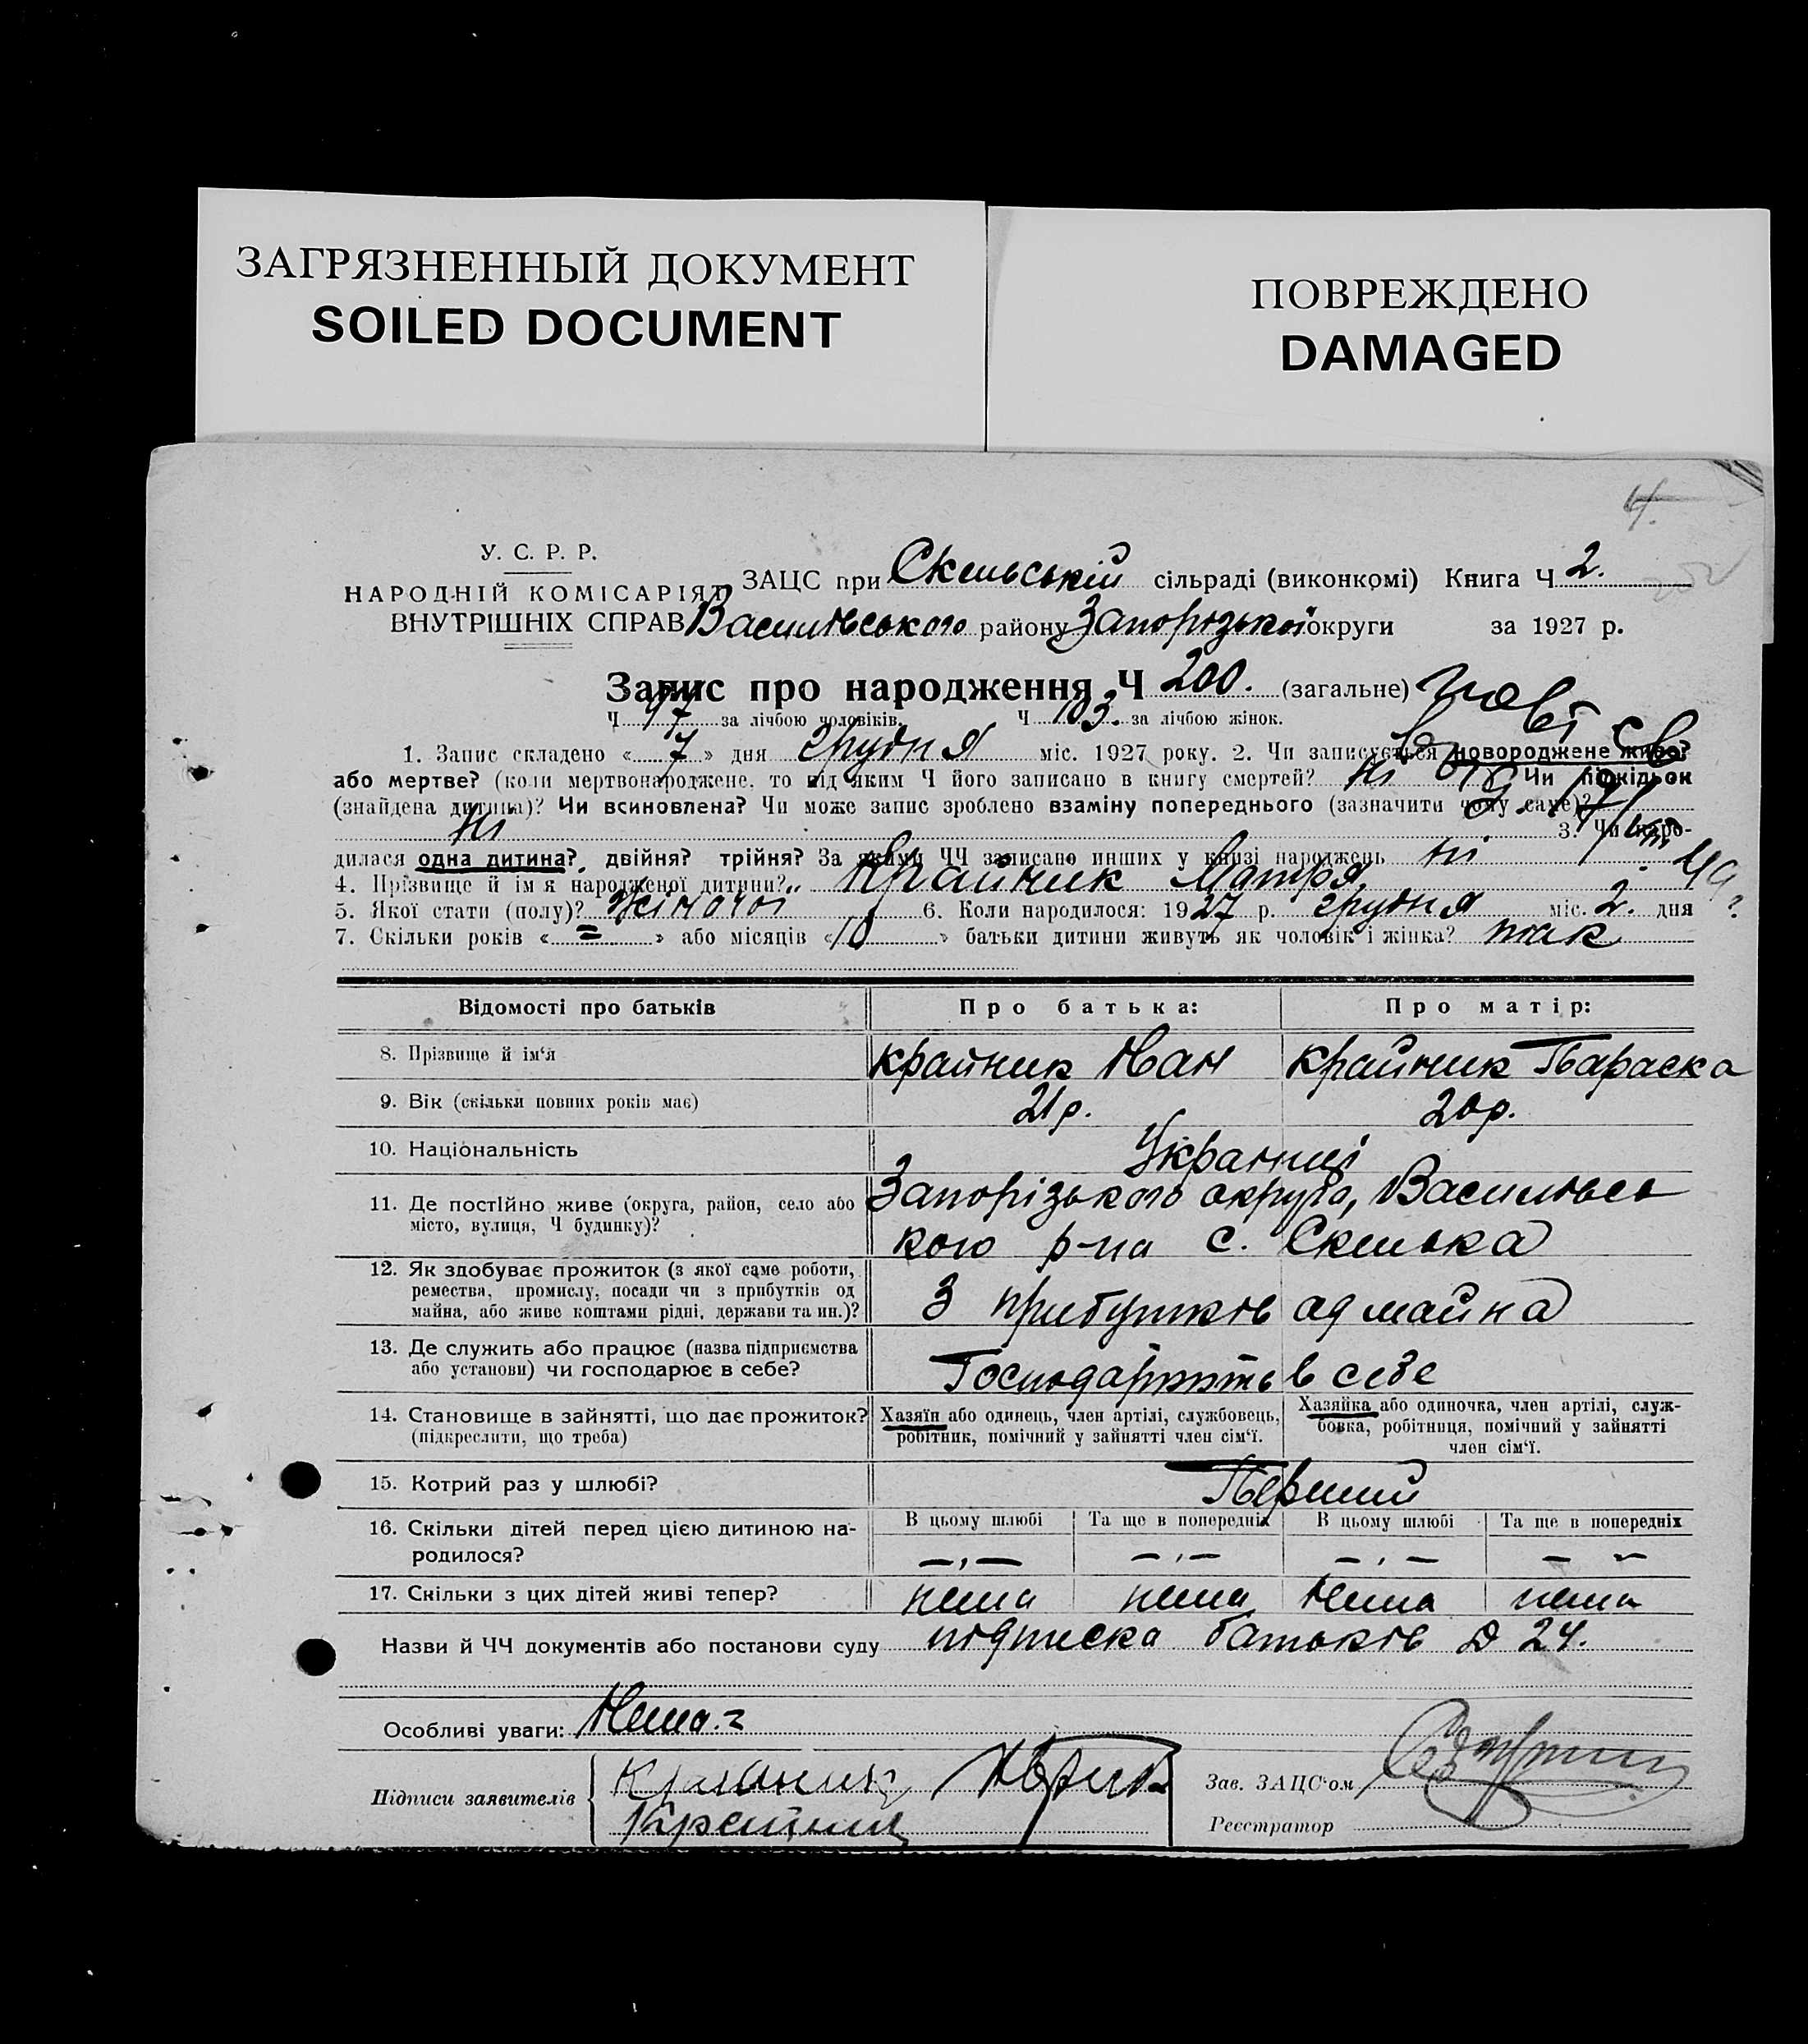 ЗАГРЯЗНЕННЫЙ ДОКУМЕНТ
SOILED DOCUMENT
ПОВРЕЖДЕНО
DAMAGED
4.
У. С. Р. Р.
НАРОДНІЙ КОМІСАРІЯТ
ВНУТРІШНІХ СПРАВ
ЗАЦС при Скельській сільраді (виконкомі) Книга Ч 2.
Василівського району Запорізької округи за 1927 р.
Запис про народження Ч 200. (загальне)
Ч 97 за лічбою чоловіків. Ч 103. за лічбою жінок.
1. Запис складено « 7 » дня грудня міс. 1927 року. 2. Чи записується новороджене живе?
або мертве? (коли мертвонароджене, то під яким Ч його записано в книгу смертей? ні Чи підкідьок
(знайдена дитина)? Чи всиновлена? Чи може запис зроблено взаміну попереднього (зазначити чому саме)?
ні 3. Чи наро-
дилася одна дитина?, двійня? трійня? За якими ЧЧ записано инших у книзі народжень ні
4. Прізвище й ім'я народженої дитини? Крайник Мотря
5. Якої стати (полу)? Жіночої 6. Коли народилося: 1927 р. грудня міс. 2. дня
7. Скільки років « = » або місяців « 10 » батьки дитини живуть як чоловік і жінка? так
Відомості про батьків Про батька: Про матір:
8. Прізвище й ім'я Крайник Иван Крайник Параска
9. Вік (скільки повних років має) 21 р. 20 р.
10. Національність Українці
11. Де постійно живе (округа, район, село або Запорізького округа, Василівсь
місто, вулиця, Ч будинку)? кого р-на с. Скелька
12. Як здобуває прожиток (з якої саме роботи,
ремества, промислу, посади чи з прибутків од
майна, або живе коштами рідні, держави та ин.)? З прибутків од майна
13. Де служить або працює (назва підприємства
або установи) чи господарює в себе? Господарють в себе
14. Становище в зайнятті, що дає прожиток? Хазяїн або одинець, член артілі, службовець, Хазяйка або одиночка, член артілі, служ-
(підкреслити, що треба) робітник, помічний у зайнятті член сім'ї. бовка, робітниця, помічний у зайнятті
член сім'ї.
15. Котрий раз у шлюбі? Перший
16. Скільки дітей перед цією дитиною на- В цьому шлюбі Та ще в попередніх В цьому шлюбі Та ще в попередніх
родилося? —,— —,— —,— — —
17. Скільки з цих дітей живі тепер? нема нема нема нема
Назви й ЧЧ документів або постанови суду підписка батьків Д 24.
Особливі уваги: Нема.
Підписи заявителів Крайник
Крайник
Зав. ЗАЦС'ом
Реєстратор